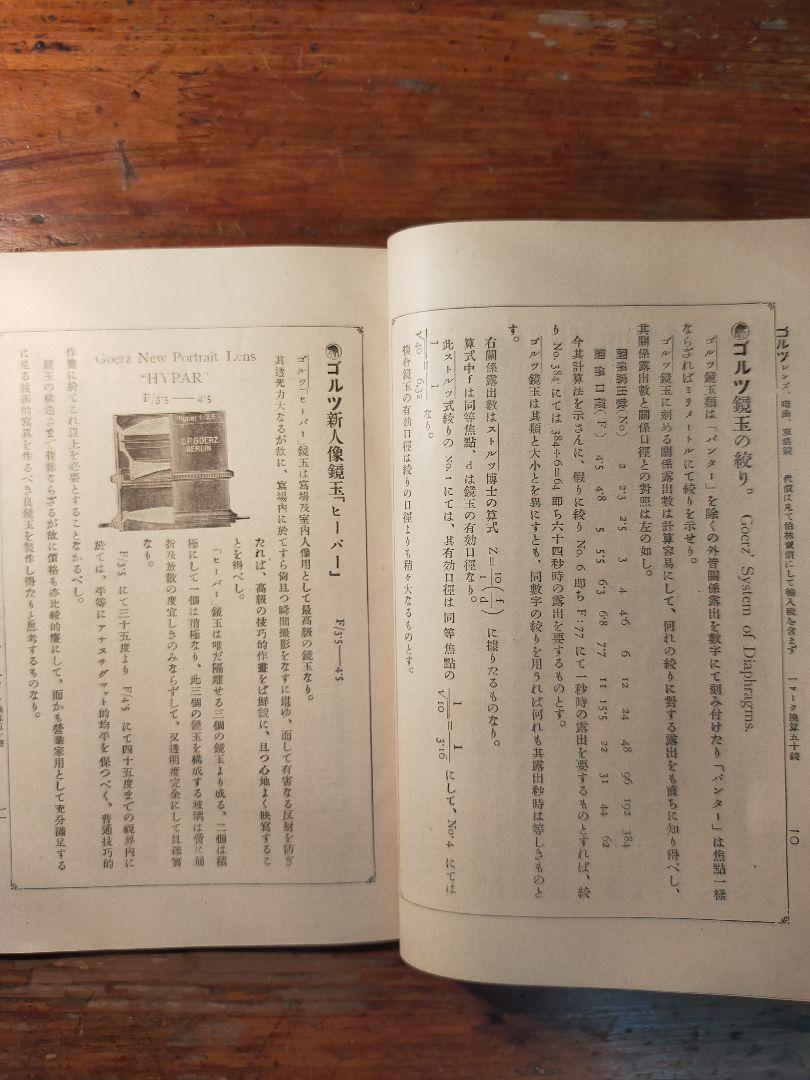 ゴルツレンズ、暗函、双眼鏡 代價は凡て伯林賣價にして輸入税を含まず 一マーク換算五十錢 一〇
ゴルツ鏡玉の絞り。 Goerz' System of Diaphragms.
ゴルツ鏡玉類は「パンター」を除くの外皆關係露出を數字にて刻み付けたり「パンター」は焦點一様
ならざればミリメートルにて絞りを示せり。
ゴルツ鏡玉に刻める關係露出數は計算容易にして、何れの絞りに對する露出をも直ちに知り得べし、
其關係露出數と關係口徑との對照は左の如し。
關係露出數(No) 2 2·3 2·5 3 4 4·6 6 12 24 48 96 192 384
關係口徑(F) 4·5 4·8 5 5·5 6·3 6·8 7·7 11 15·5 22 31 44 62
今其計算法を示さんに、假りに絞り No. 6 即ち F:77 にて一秒時の露出を要するものとすれば、絞
り No. 384 にては 384÷6=64 即ち六十四秒時の露出を要するものとす。
ゴルツ鏡玉は其類と大小とを異にすとも、同數字の絞りを用うれば何れも其露出秒時は等しきものと
す。
右關係露出數はストルツ博士の算式 Z=1/10(f/d)² に據りたるものなり。
算式中 f は同等焦點、d は鏡玉の有効口徑なり。
此ストルツ式絞りの No. 1 にては、其有効口徑は同等焦點の 1/√10 = 1/3·16 にして、No. 4 にては
1/√40 = 1/6·32 なり。
複合鏡玉の有効口徑は絞りの口徑よりも稍々大なるものとす。
ゴルツ新人像鏡玉「ヒーパー」 F/3·5—4·5
Goerz New Portrait Lens
"HYPAR"
F/3·5—4·5
Hypar 1:3,5
C.P. GOERZ
BERLIN
ゴルツ「ヒーパー」鏡玉は寫場及室内人像用として最高級の鏡玉なり。
其透光力大なるが故に、寫場内に於てすら尚且つ瞬間撮影をなすに堪ゆ、而して有害なる反射を防ぎ
たれば、高級の技巧的作畫をば鮮鋭に、且つ心地よく映寫するこ
とを得べし。
「ヒーパー」鏡玉は唯だ隔離せる三個の鏡玉より成る、二個は積
極にして一個は消極なり、此三個の鏡玉を構成する玻璃は啻に屈
折及放散の度宜しきのみならずして、又透明度完全にして且確實
なり。
F/3·5 にて三十五度より F/4·5 にて四十五度までの視界内に
於ては、平等にアナスチグマット的均平を保つべく、普通技巧的
作畫に於てこれ以上を必要とすることなかるべし。
鏡玉の構造さまで複雜ならざるが故に價格も亦比較的廉にして、而かも營業家用として充分滿足する
に足る技術的寫眞を作るべき良鏡玉を製作し得たりと思考するものなり。